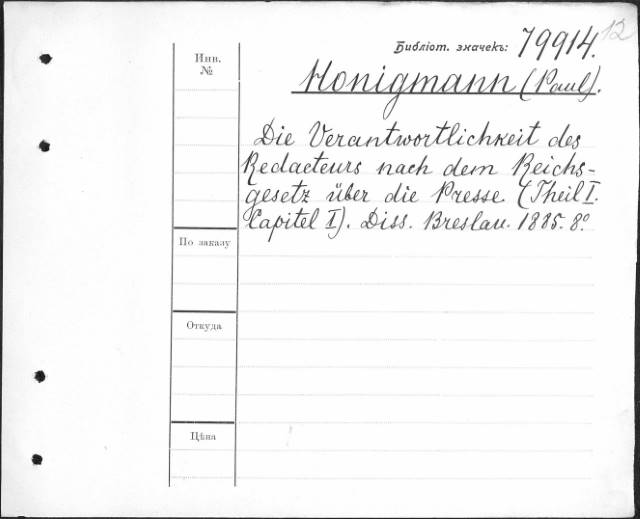 12
Библіот. значекъ: 79914.
Инв.
№
Honigmann (Paul).
Die Verantwortlichkeit des
Redacteurs nach dem Reichs-
gesetz über die Presse (Theil I.
Capitel I). Diss. Breslau. 1885. 8º
По заказу
Откуда
Цѣна